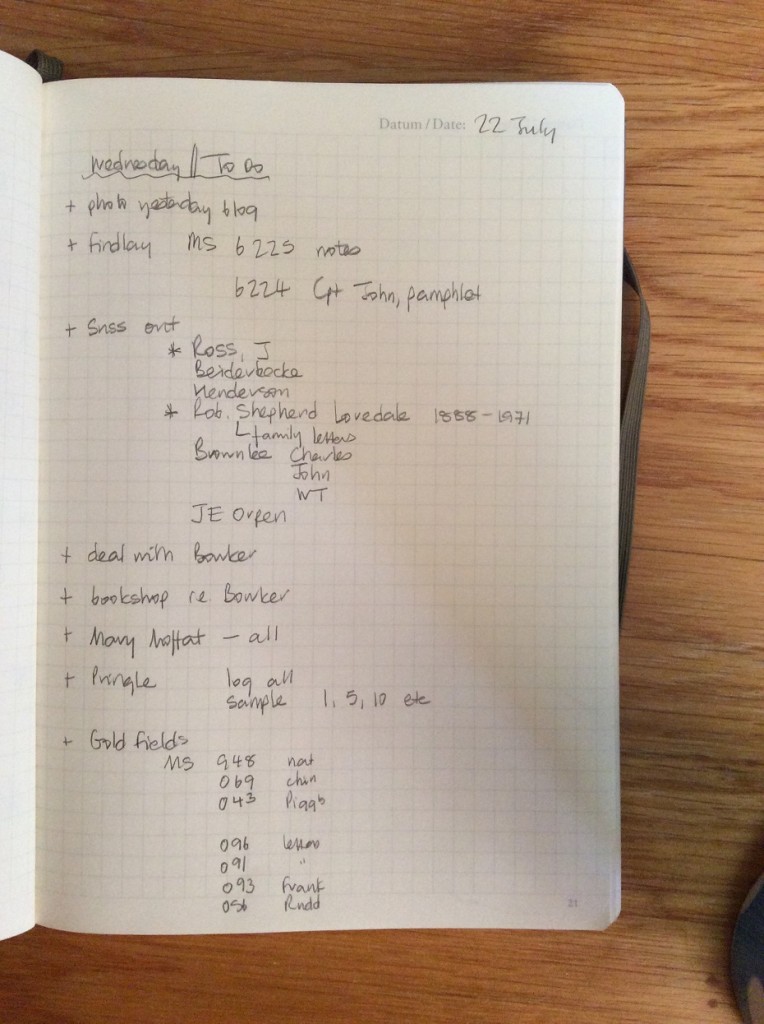 Datum / Date: 22 July
Wednesday || To Do
+ photo yesterday blog
+ findlay MS 6225 notes
6224 Cpt John, pamphlet
+ Snss out
* Ross, J
Beiderbecke
Henderson
* Rob. Shepherd Lovedale 1888 - 1971
family letters
Brownlee Charles
John
WT
JE Orpen
+ deal with Bowker
+ bookshop re Bowker
+ Mary Moffat - all
+ Pringle log all
sample 1, 5, 10 etc
+ Gold fields
MS 948 nat
069 chin
043 Piggs
096 letters
091 "
093 frank
056 Rudd
21